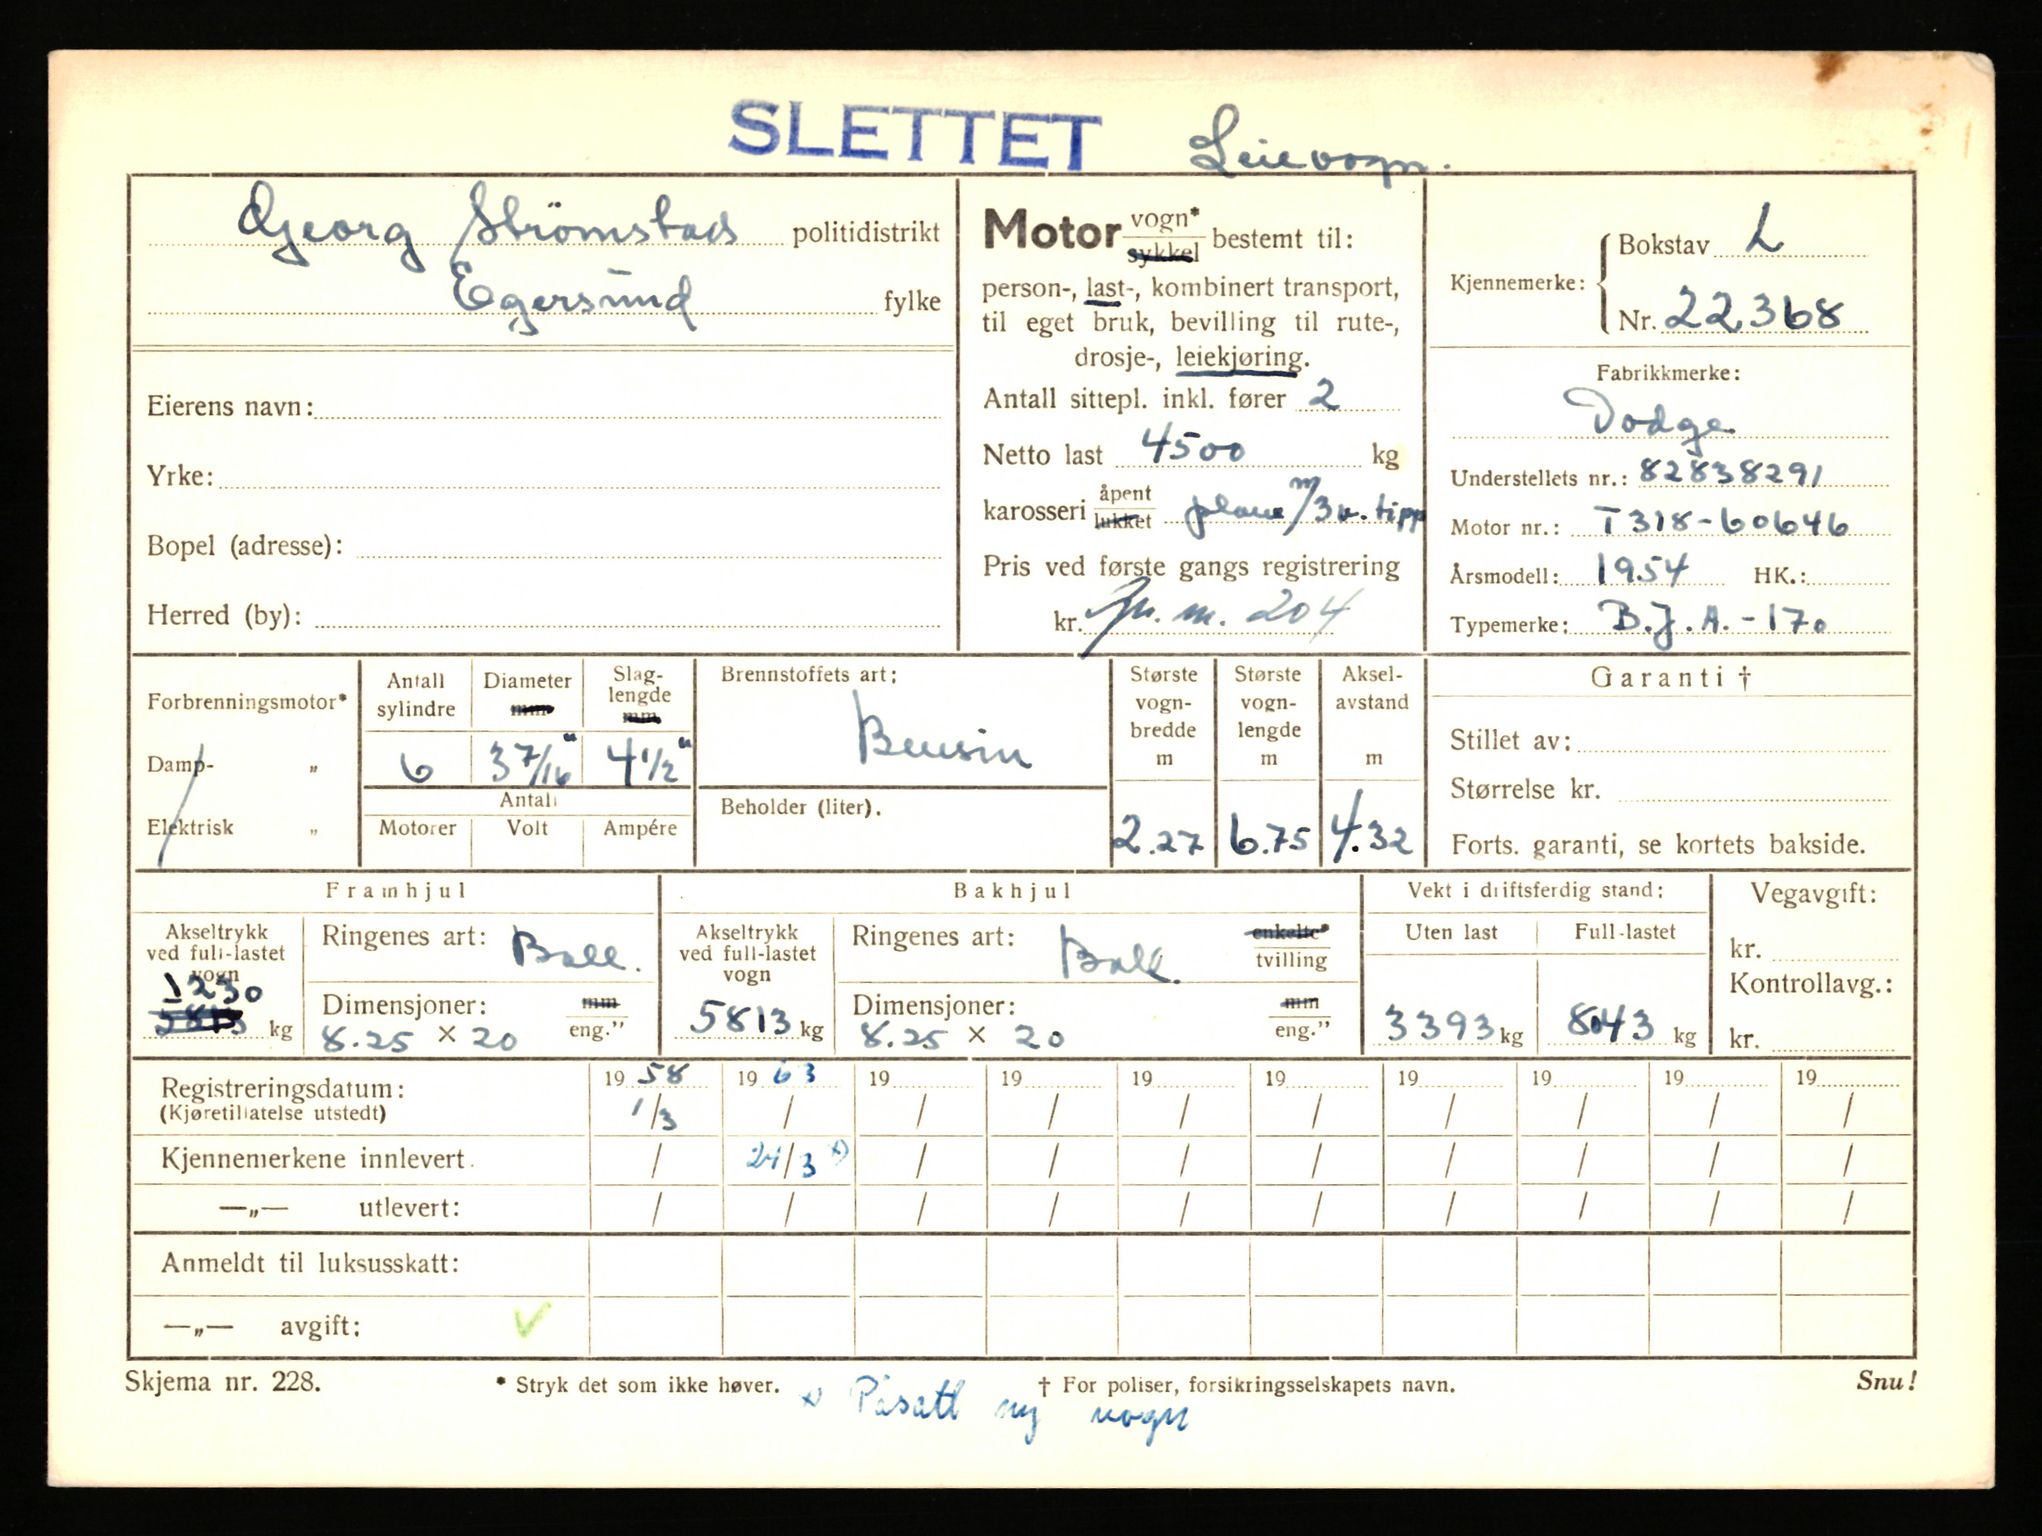 SLETTET Leievogn.
Georg Strömstad politidistrikt
Egersund fylke
Eierens navn:
Yrke:
Bopel (adresse):
Herred (by):
Motor vogn* sykkel bestemt til:
person-, last-, kombinert transport,
til eget bruk, bevilling til rute-,
drosje-, leiekjøring.
Antall sittepl. inkl. fører 2
Netto last 4500 kg
karosseri åpent lukket plan m/3v. tipp
Pris ved første gangs registrering
kr. m. 204
Kjennemerke: Bokstav L
Nr. 22368
Fabrikkmerke:
Dodge
Understellets nr.: 82838291
Motor nr.: T318-60646
Årsmodell: 1954 HK.:
Typemerke: B.J.A.-170
Forbrenningsmotor*
Damp- „
Elektrisk „
Antall sylindre
6
Diameter mm
3 7/16"
Slag-
lengde
mm
4 1/2"
Antall
Motorer Volt Ampére
Brennstoffets art:
Bensin
Beholder (liter).
Største
vogn-
bredde
m
2.27
Største
vogn-
lengde
m
6.75
Aksel-
avstand
m
4.32
Garanti †
Stillet av:
Størrelse kr.
Forts. garanti, se kortets bakside.
Framhjul
Akseltrykk
ved full-lastet
vogn
1230
5813 kg
Ringenes art: Ball.
Dimensjoner: mm
8.25 x 20 eng."
Bakhjul
Akseltrykk
ved full-lastet
vogn
5813 kg
Ringenes art: Ball. enkelte* tvilling
Dimensjoner: mm
8.25 x 20 eng."
Vekt i driftsferdig stand:
Uten last Full-lastet
3393 kg 8043 kg
Vegavgift:
kr.
Kontrollavg.:
kr.
Registreringsdatum: 19 58 19 63 19 19 19 19 19 19 19 19
(Kjøretillatelse utstedt) 1/3 / / / / / / / / /
Kjennemerkene innlevert. / 21/3 x) / / / / / / / /
—„— utlevert: / / / / / / / / / /
Anmeldt til luksusskatt:
—„— avgift: ✓
Skjema nr. 228. * Stryk det som ikke høver. † For poliser, forsikringsselskapets navn. Snu!
x) Påsatt ny vogn